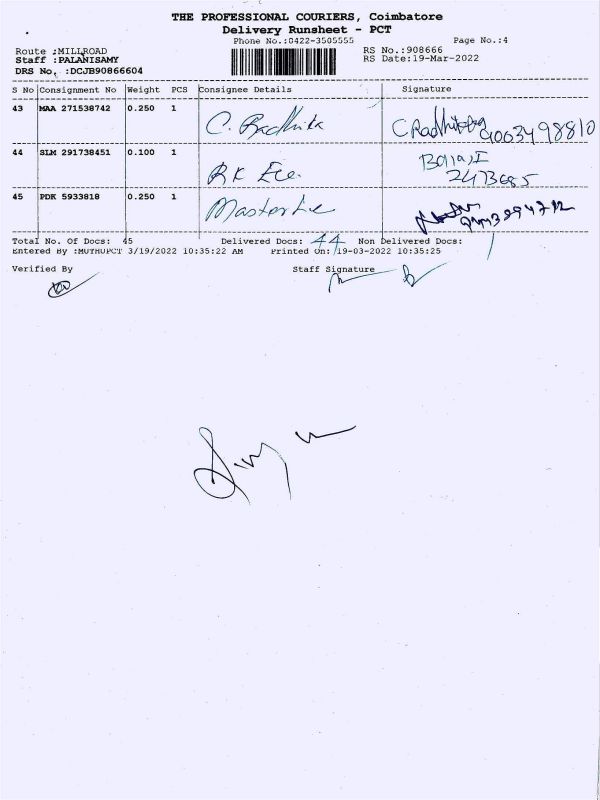 THE PROFESSIONAL COURIERS, Coimbatore
Delivery Runsheet - PCT
Phone No.:0422-3505555 Page No.:4
Route :MILLROAD RS No.:908666
Staff :PALANISAMY RS Date:19-Mar-2022
DRS No. :DCJB90866604
S No Consignment No Weight PCS Consignee Details Signature
43 MAA 271538742 0.250 1 C. Radhika C Radhika 9003498810
44 SLM 291738451 0.100 1 RK Ece. Balaji 2473685
45 PDK 5933818 0.250 1
Total No. Of Docs: 45 Delivered Docs: 44 Non Delivered Docs: 1
Entered By :MUTHUPCT 3/19/2022 10:35:22 AM Printed On: 19-03-2022 10:35:25
Verified By Staff Signature